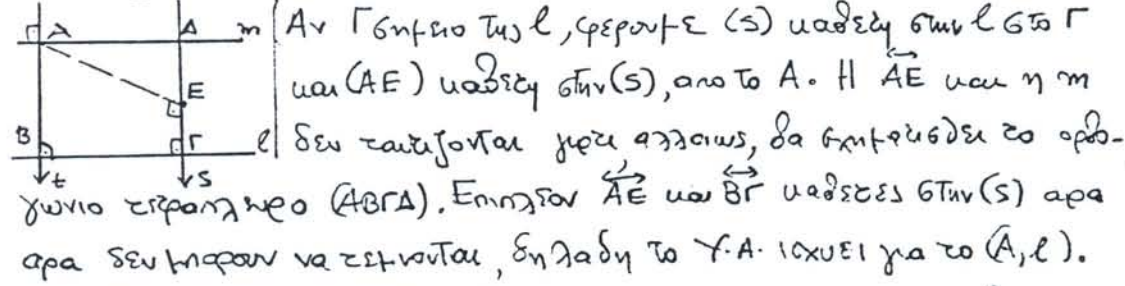 A Δ m
E
B Γ l
t s
Αν Γ σημειο της l, φερουμε (s) καθετη στην l στο Γ
και (AE) καθετη στην (s), απο το A. Η AE και η m
δεν ταυτιζονται γιατι αλλιως, θα σχηματισθει το ορθο-
γωνιο τετραπλευρο (ABΓΔ). Επιπλεον AE και BΓ καθετες στην (s) αρα
αρα δεν μπορουν να τεμνονται, δηλαδη το Υ.Α. ισχυει για το (A, l).